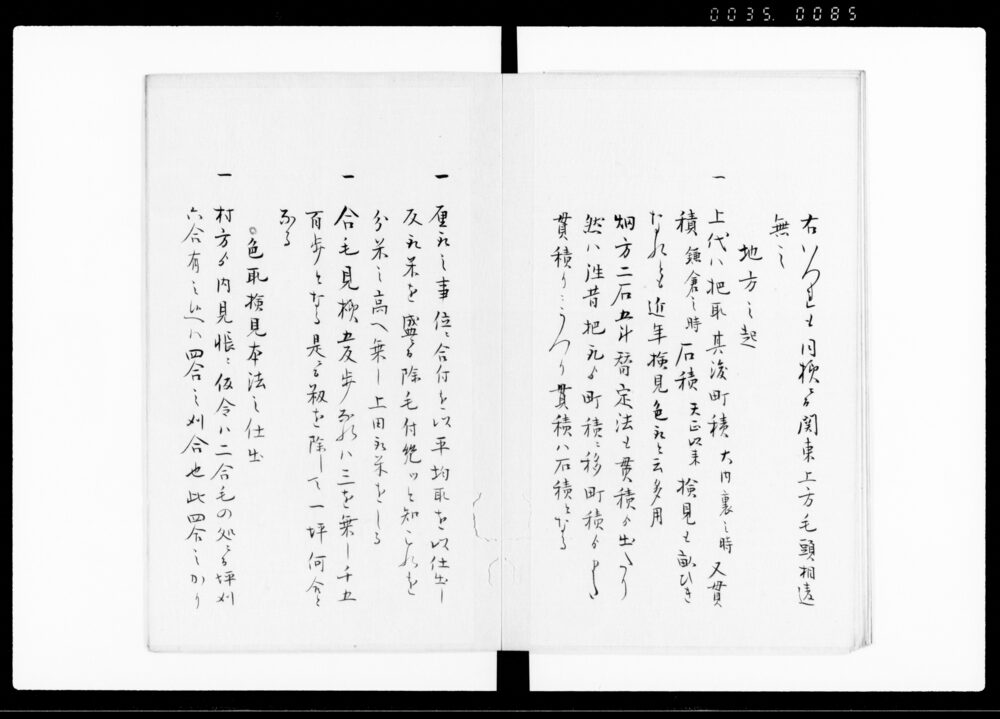 0035.0085
右いつれも同様ニ而関東上方毛頭相違
無之
地方之起
一 上代ハ把取其後町積 大内裏之時 又貫
積 鎌倉之時 石積 天正以来 検見も畝ひき
なれとも近年検見色取と云多用
畑方二石五斗替定法も貫積ゟ出たり
然ハ往昔把取ゟ町積ニ移町積ゟ
貫積りニうつり貫積ハ石積となる
一 厘取之事位ニ合付を以平均取を以仕出し
反取米を盛ニ而除毛付
分米之高へ乗し上田取米をしる
一 合毛見様五反歩なれハ三を乗し千五
百歩となる是ニ而籾を除して一坪何合と
なる
色取検見本法之仕出
一 村方ゟ内見帳ニ仮令ハ二合毛の処ニ而坪刈
六合有之此ハ四合之刈合也此四合之かり